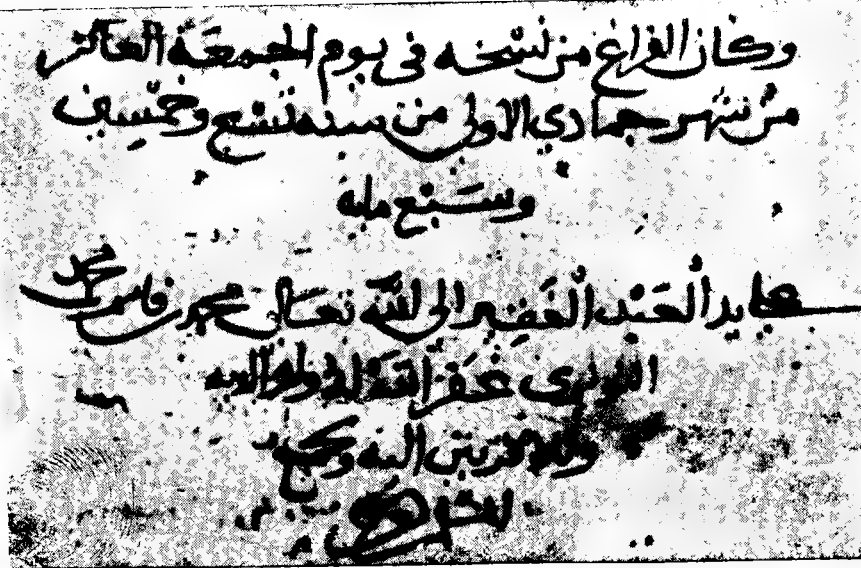 وكان الفراغ من نسخه في يوم الجمعة العاشر
من شهر جمادي الاولى من سنة تسع وخمسين
وسبع ماية
على يد العبد الفقير الى الله تعالى محمد بن قاسم بن محمد
غفر الله له ولوالديه
ولاقربين اليه ولجميع